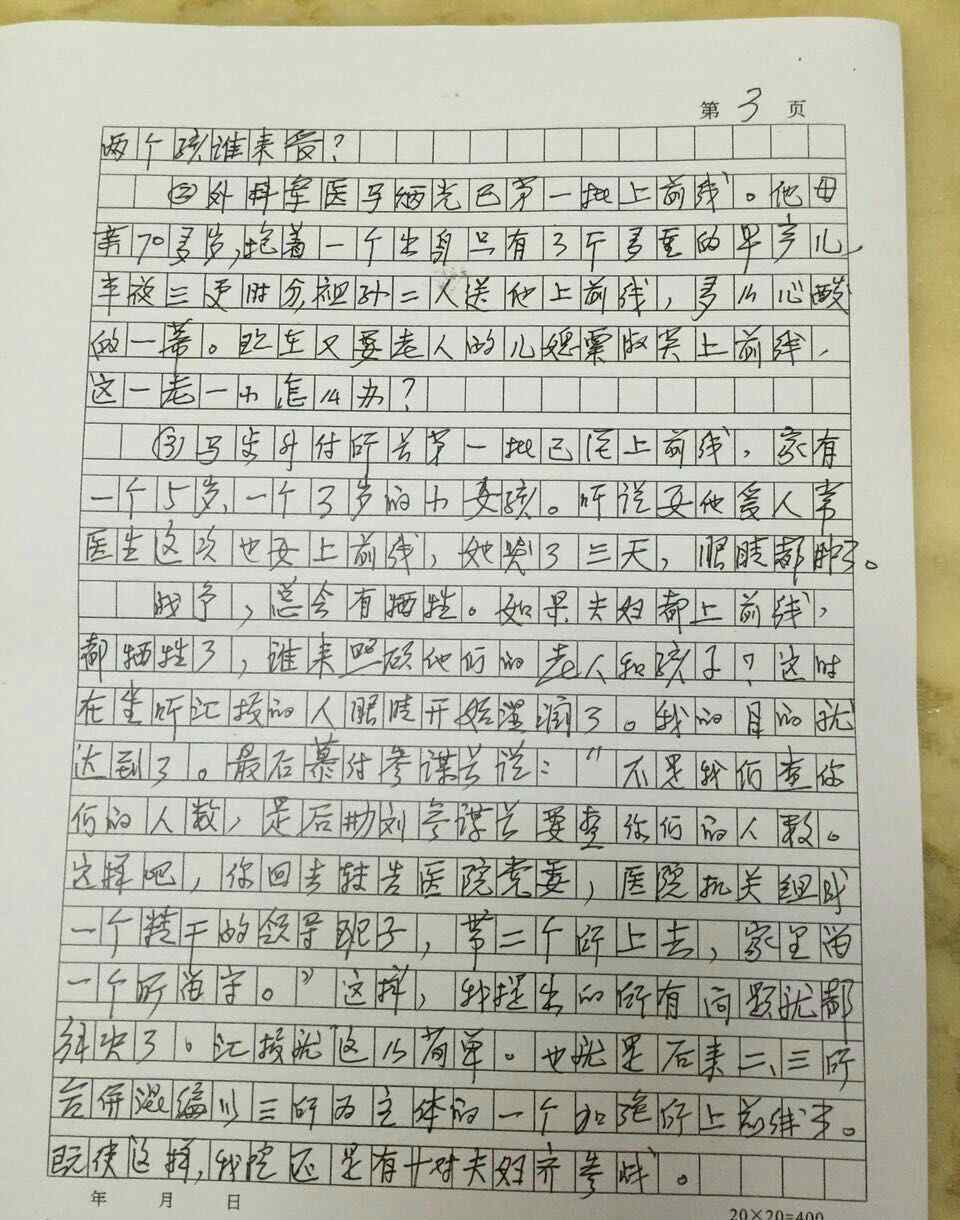 第 3 页
两个孩谁来管?
②外科军医马炳光已第一批上前线。他母
亲70多岁,抱着一个出身只有3斤多重的早产儿,
半夜三更时分,祖孙二人送他上前线,多么心酸
的一幕。现在又要老人的儿媳粟淑英上前线,
这一老一小怎么办?
(3)马 外付所长第一批已经上前线,家有
一个5岁、一个3岁的小女孩。听说要他爱人常
医生这次也要上前线,她哭了三天,眼睛都肿了。
战争,总会有牺牲。如果夫妇都上前线,
都牺牲了,谁来照顾他们的老人和孩子?这时
在坐听汇报的人眼睛开始湿润了。我的目的就
达到了。最后慕付参谋长说:“不是我们查你
们的人数,是后勤刘参谋长要查你们的人数。
这样吧,你回去转告医院党委,医院机关组成
一个精干的领导班子,带二个所上去,家里留
一个所留守。”这样,我提出的所有问题就都
解决了。汇报就这么简单。也就是后来二、三所
合併混编以三所为主体的一个加强所上前线了。
既使这样,我院还是有十对夫妇齐参战。
年 月 日
20×20=400